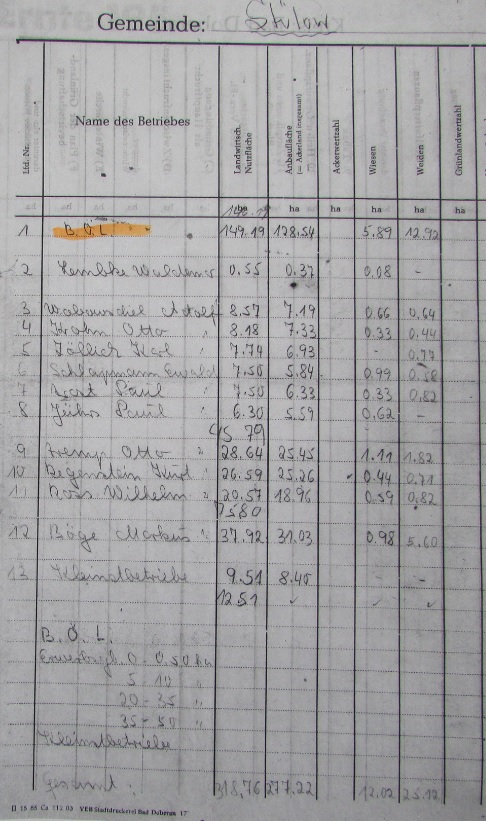 Gemeinde: Stülow
Lfd. Nr. Name des Betriebes Landwirtsch. Nutzfläche Anbaufläche (= Ackerland insgesamt) Ackerwertzahl Wiesen Weiden Grünlandwertzahl
ha ha ha ha ha ha
1 B.Ö.L. 149.19 128.54 5.89 12.92
2 Lembke Waldemar 0.55 0.37 0.08 -
3 Adolf 8.57 7.19 0.66 0.64
4 Krohn Otto " 8.18 7.33 0.33 0.44
5 Karl " 7.74 6.93 - 0.77
6 Ewald 7.50 5.84 0.99 0.58
7 Paul " 7.50 6.33 0.33 0.82
8 Jührs Paul " 6.30 5.59 0.62 -
45 79
9 Otto " 28.64 25.45 1.11 1.82
10 Kurt " 26.59 25.26 0.44 0.71
11 Wilhelm " 20.57 18.96 0.59 0.82
7580
12 Böge Markus " 37.92 31.03 0.98 5.60
13 Kleinstbetriebe 9.51 8.40 - -
12 51
B.Ö.L.
0 - 0,50 ha
5 - 10 "
20 - 35 "
35 - 50 "
Kleinstbetriebe
Gesamt: 318,76 277.22 12.02 25.12
VEB Stadtdruckerei Bad Doberan